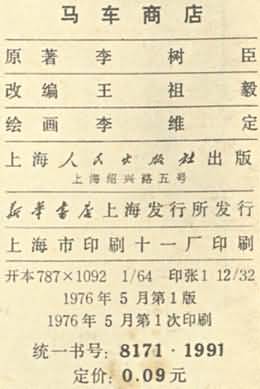 马车商店
原著 李树臣
改编 王祖毅
绘画 李维定
上海人民出版社出版
上海绍兴路五号
新华书店上海发行所发行
上海市印刷十一厂印刷
开本787×1092 1/64 印张1 12/32
1976年5月第1版
1976年5月第1次印刷
统一书号：8171·1991
定价：0.09元